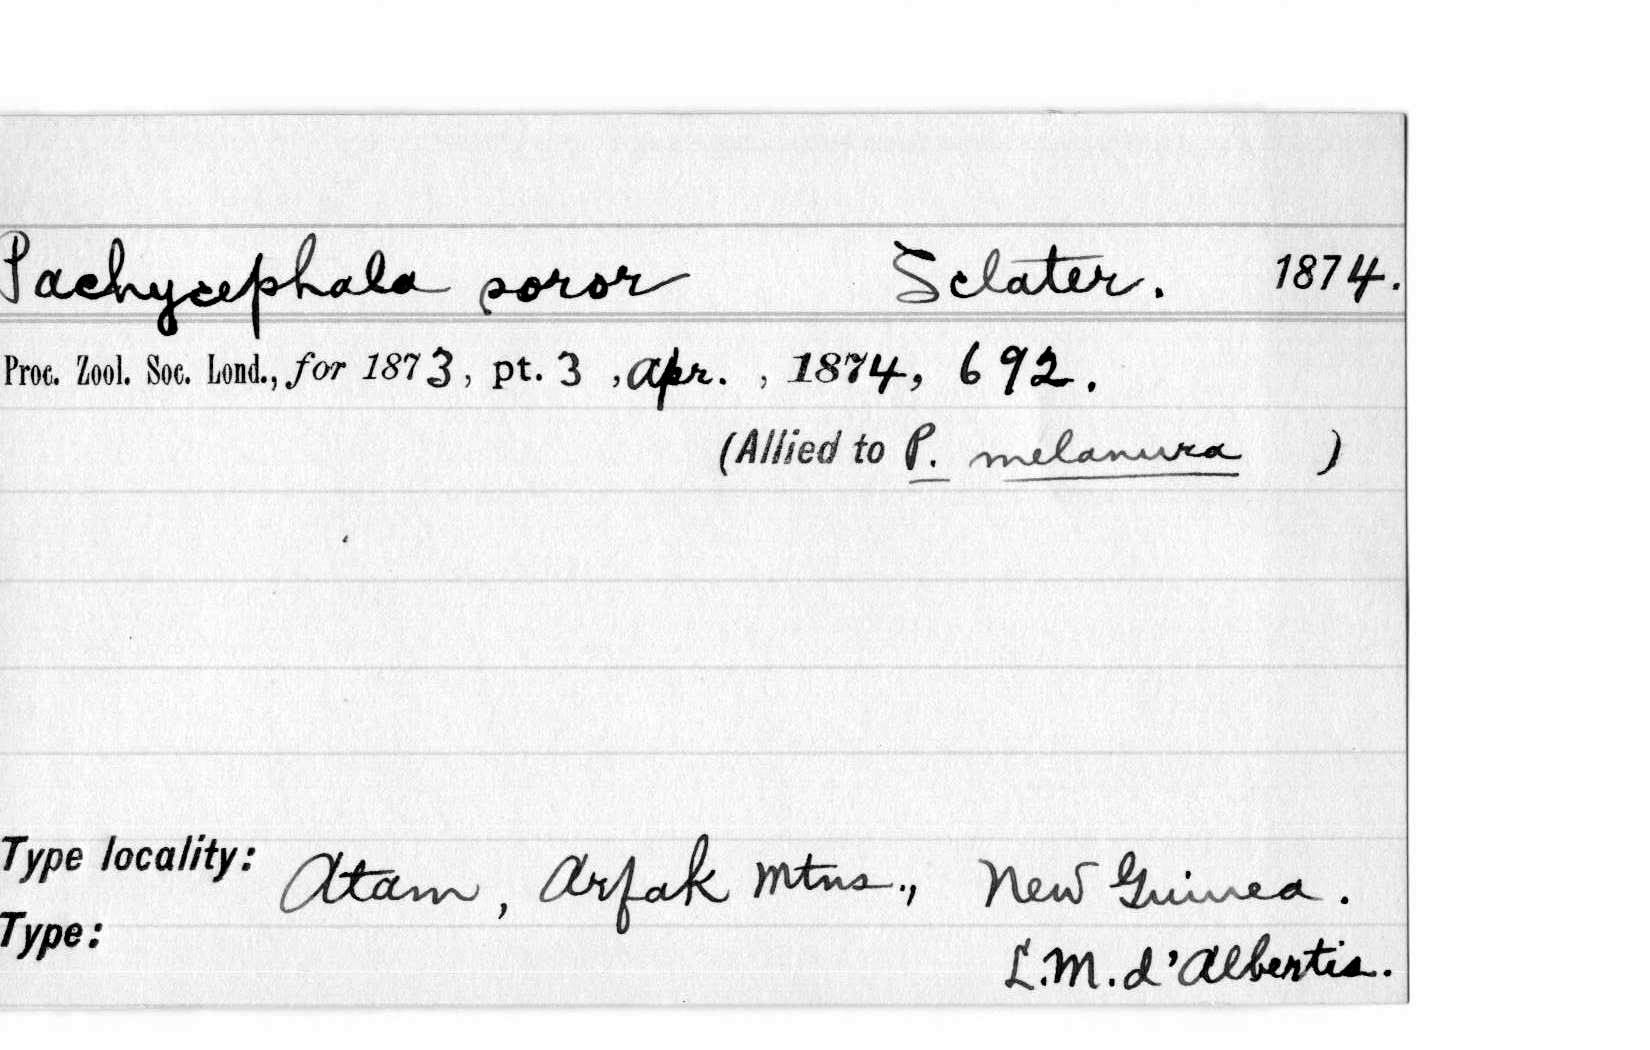 Pachycephala soror Sclater. 1874.
Proc. Zool. Soc. Lond., for 1873, pt. 3, Apr., 1874, 692.
(Allied to P. melanura )
Type locality: Atam, Arfak Mtns., New Guinea.
Type:
L.M. d'Albertis.